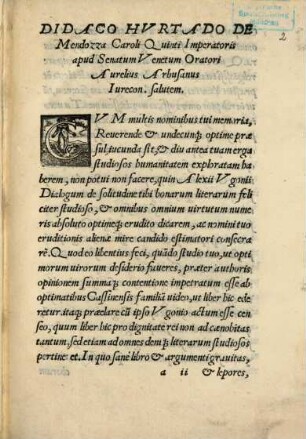 2
DIDACO HVRTADO DE
Mendozza Caroli Quinti Imperatoris
apud Senatum Venetum Oratori
Aurelius Arhusanus
Iurecon. salutem.
CVM multis nominibus tui memoria,
Reuerende & undecunq; optime præ
sul, iucunda sit, & diu antea tuam erga
studiosos humanitatem exploratam ha
berem, non potui non facere, quin Alexii Vgonii
Dialogum de solitudine tibi bonarum literarum feli
citer studioso, & omnibus omnium uirtutum nume
ris absoluto optimeq; erudito dicarem, ac nomini tuo
eruditionis alienæ mire candido estimatori consecra
rē. Quod eo libentius feci, quâdo studio tuo, ut opti
morum uirorum desiderio faueres, præter authoris
opinionem summaq; contentione impetratum esse ab
optimatibus Cassinensis familiæ uideo, ut liber hic ede
retur. itaq; præclare cū ipso Vgonio actum esse cen
seo, quum liber hic pro dignitate rei non ad cœnobitas
tantum, sed etiam ad omnes deniq; literarum studiosos
pertineret. In quo sanè libro & argumenti grauitas,
a ii & lepores,